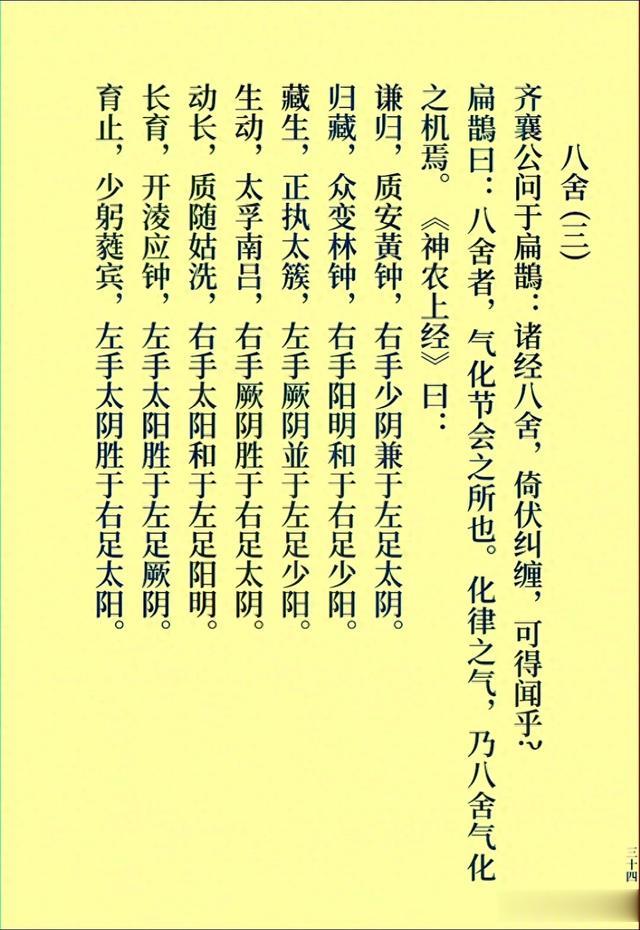 八舍(三)
齐襄公问于扁鵲：诸经八舍，倚伏纠缠，可得闻乎?
扁鵲曰：八舍者，气化节会之所也。化律之气，乃八舍气化
之机焉。《神农上经》曰：
谦归，质安黄钟，右手少阴兼于左足太阴。
归藏，众变林钟，右手阳明和于右足少阳。
藏生，正执太簇，左手厥阴並于左足少阳。
生动，太孚南吕，右手厥阴胜于右足太阴。
动长，质随姑洗，右手太阳和于左足阳明。
长育，开淩应钟，左手太阳胜于左足厥阴。
育止，少躬蕤宾，左手太阴胜于右足太阳。
三十四